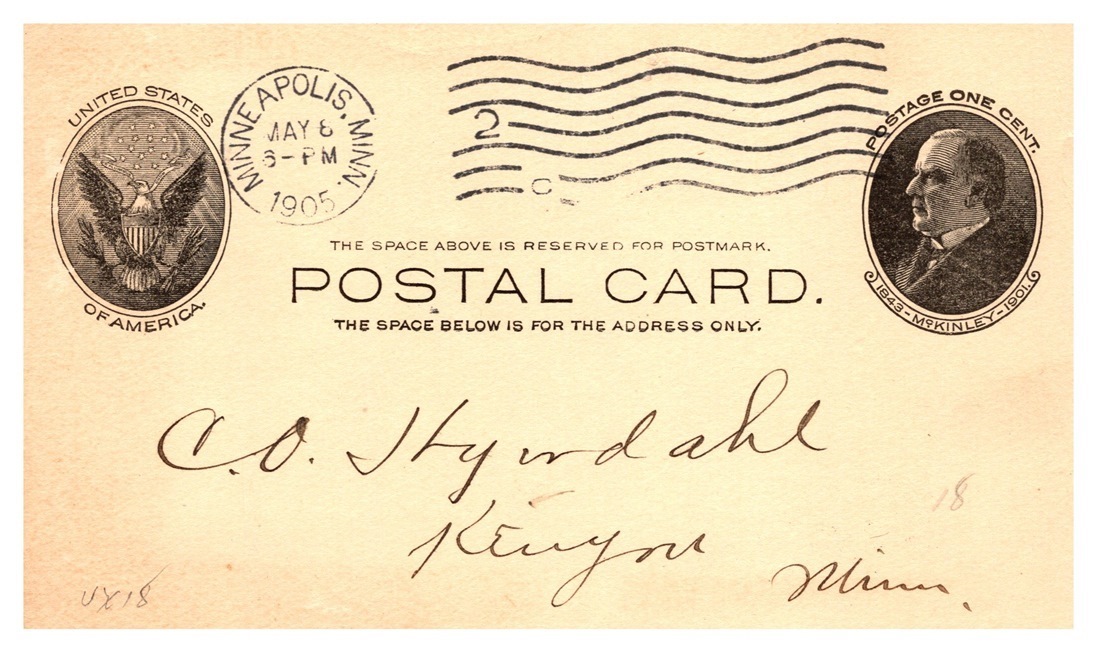 UNITED STATES
OF AMERICA.
MINNEAPOLIS, MINN.
MAY 8
6-PM
1905
2
C
POSTAGE ONE CENT.
1843-McKINLEY-1901.
THE SPACE ABOVE IS RESERVED FOR POSTMARK.
POSTAL CARD.
THE SPACE BELOW IS FOR THE ADDRESS ONLY.
C. O.
Kenyon
Minn.
18
UX18